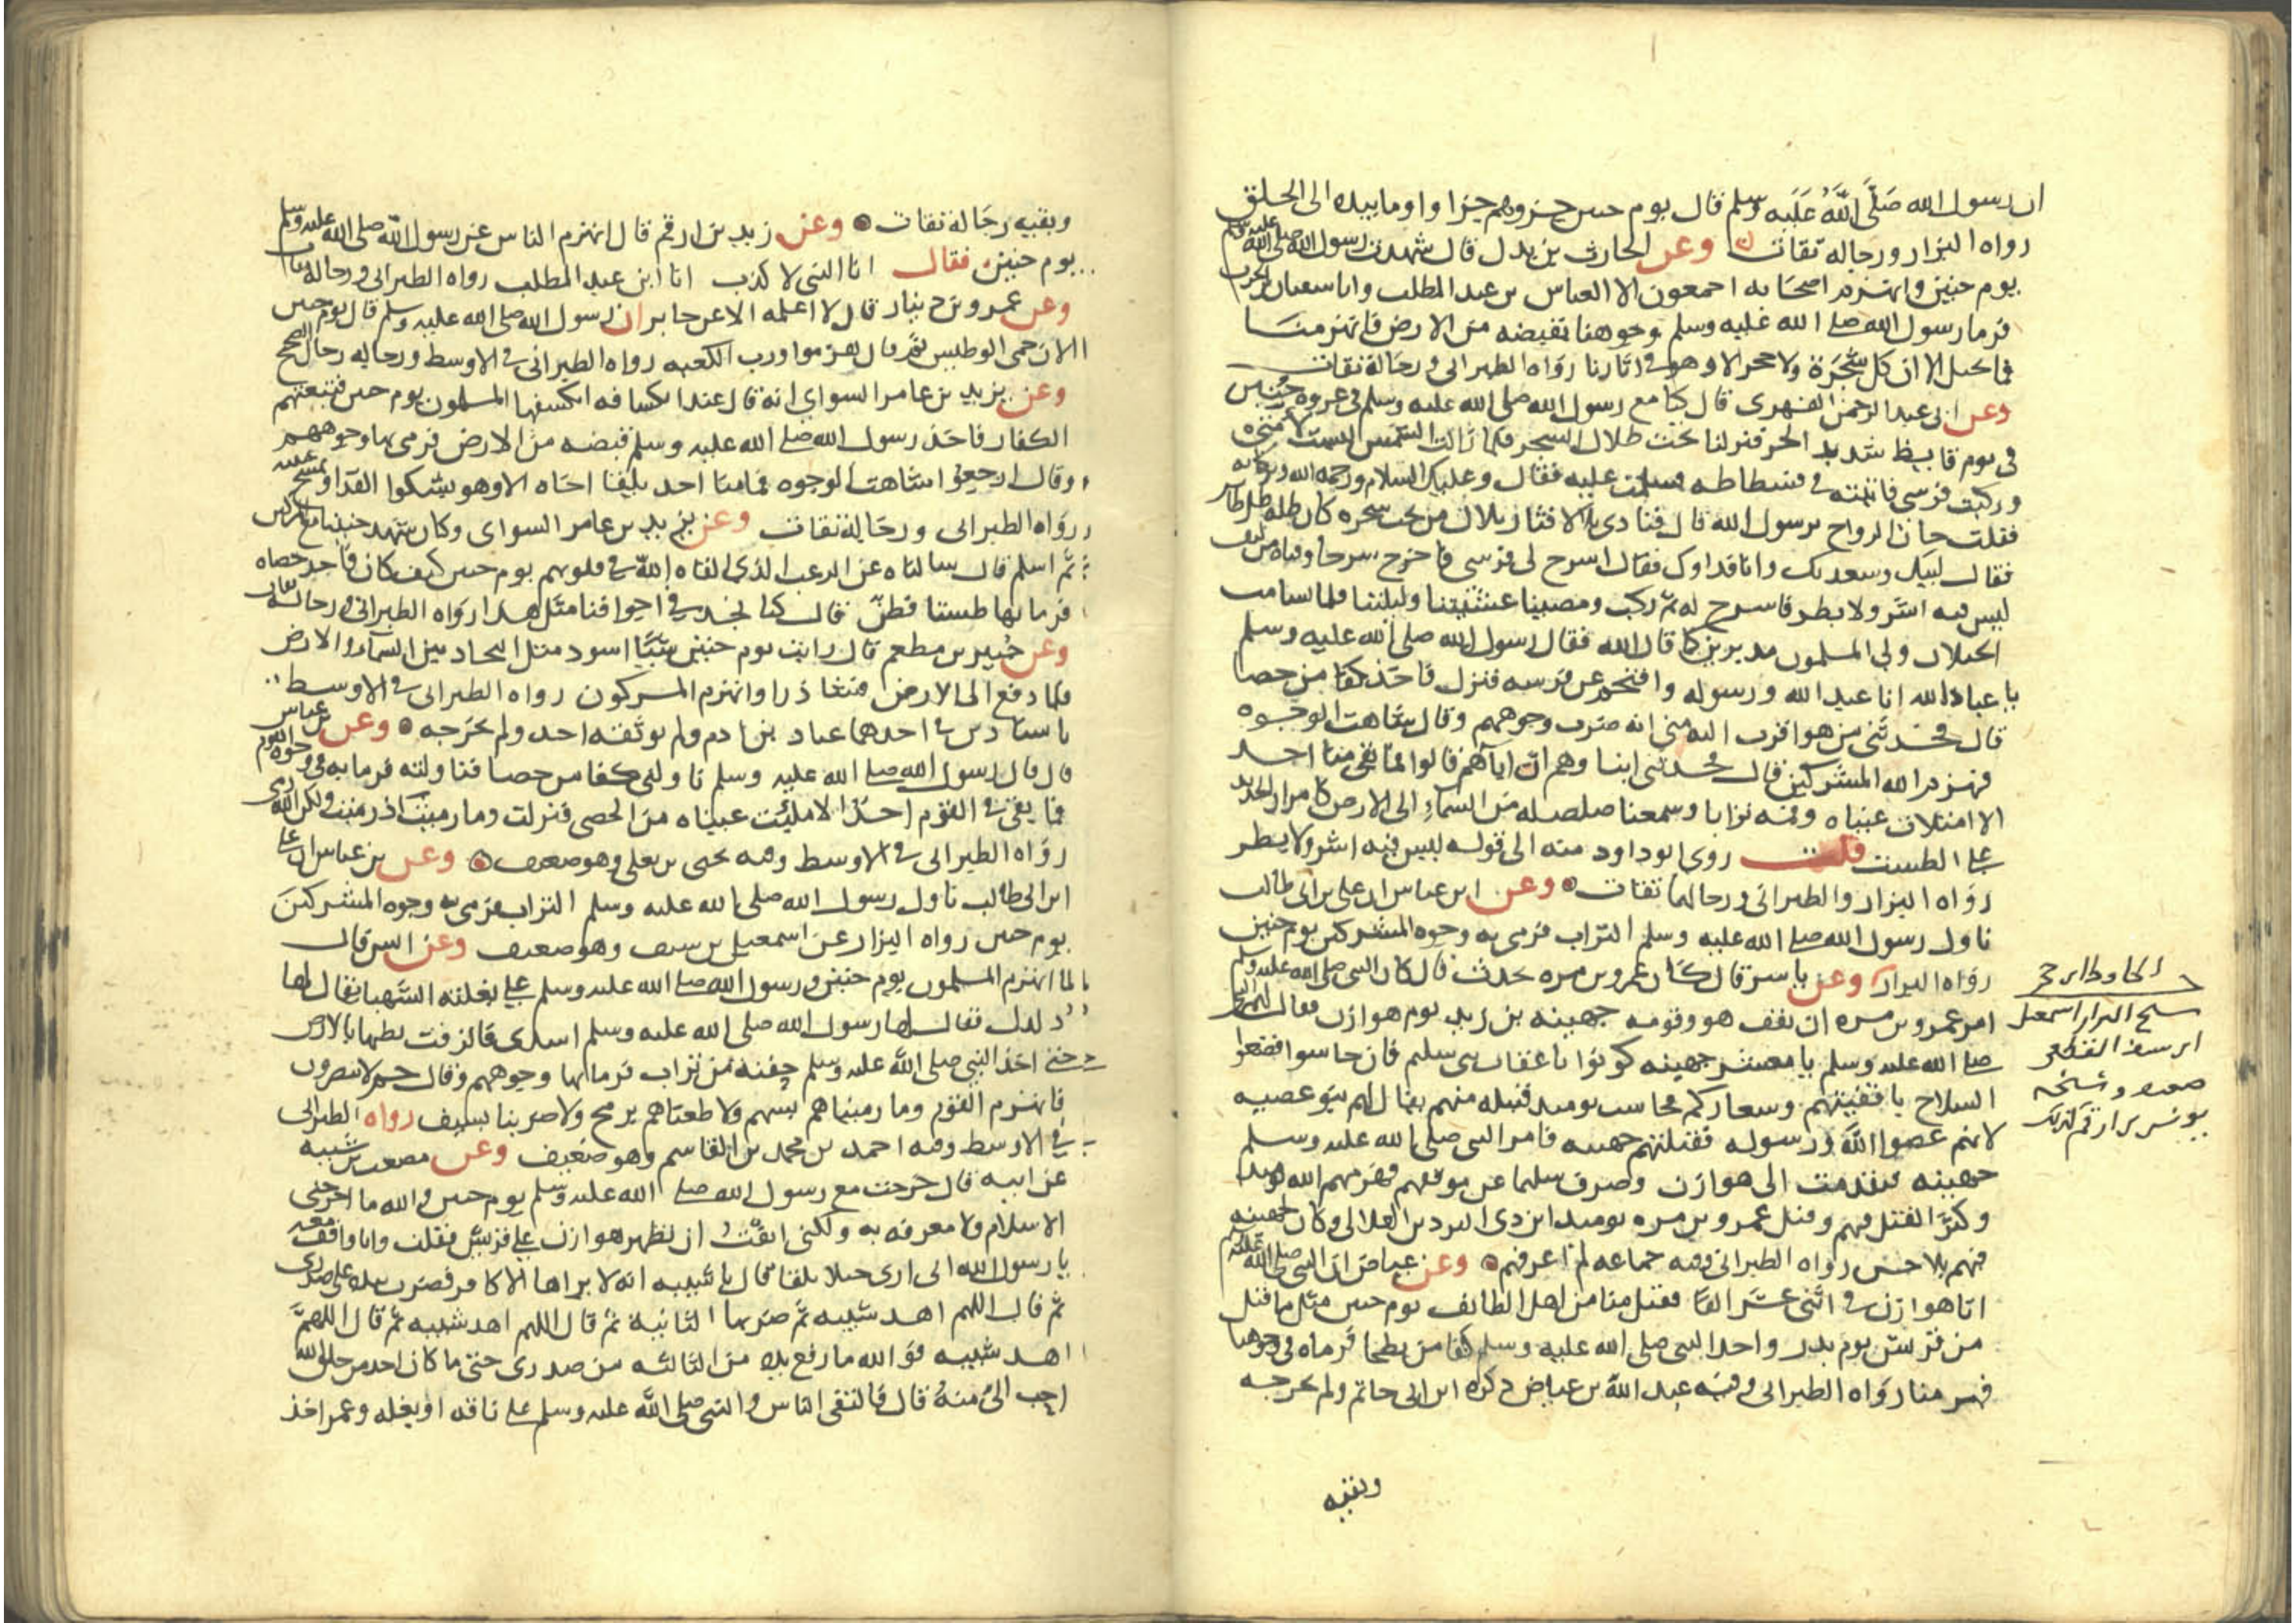 ان رسول الله صَلَّى اللَّهُ عَلَيه وسلم قال يوم حنين جزوهم جزا واوما بيده الى الحلق
رواه البزار ورجاله ثقات وعن الحارث بن بدل قال شهدت رسول الله صلى الله عليه وسلم
يوم حنين وانهزم اصحابه اجمعون الا العباس بن عبد المطلب وابا سفيان بن الحرث
فرما رسول الله صلى الله عليه وسلم وجوهنا بقبضه من الارض فانهزمنا
فما خيل الا ان كل شجرة ولا حجر الا وهو في اثارنا رواه الطبرانى ورجاله ثقات
وعن ابى عبد الرحمن الفهرى قال كنا مع رسول الله صلى الله عليه وسلم في غزوه حنين
فى يوم قايظ شديد الحر فنزلنا تحت ظلال الشجر فلما زالت الشمس لبست لامتى
وركبت فرسى فاتيته في فسطاطه فسلمت عليه فقال وعليك السلام ورحمه الله وبركاته
فقلت حان الرواح يرسول الله قال فنادى بلال فثار بلال من تحت سجره كان ظله ظل طاير
فقال لبيك وسعديك وانا فداوك فقال اسرج لى فرسى فاخرج سرجا دفتاه من ليف
ليس فيه اشر ولا بطر فاسرج له ثم ركب ومضينا عشيتنا وليلتنا فلما تسامت
الخيلان ولى المسلمون مدبرين كما قال الله فقال رسول الله صلى الله عليه وسلم
يا عباد الله انا عبد الله ورسوله واقتحم عن فرسه فنزل فاخذ كفا من حصا
قال فحدثنى من هو اقرب اليه منى انه ضرب وجوههم وقال شاهت الوجوه
فهزم الله المشركين قال فحدثنى ابنا وهم ان اباهم قالوا فما بقى منا احد
الا امتلات عيناه وفمه ترابا وسمعنا صلصله من السماء الى الارض كامرار الحديد
على الطست قلت روى ابو داود منه الى قوله ليس فيه اشر ولا بطر
رواه البزار والطبرانى ورجالهما ثقات وعن ابن عباس ان على بن ابى طالب
ناول رسول الله صلى الله عليه وسلم التراب فرمى به وجوه المشركين يوم حنين
رواه البزار وعن ياسر قال كان عمرو بن مره يحدث قال كان النبى صلى الله عليه وسلم
امر عمرو بن مره ان يقف هو وقومه جهينه بن زيد يوم هوازن فقال لهم النبى
صلى الله عليه وسلم يا معشر جهينه كونوا باعقاب بنى سليم فان جاسوا فضعوا
السلاح باقفيتهم وسعاركم محاسب يوميد قبيله منهم يقال لهم بنو عصيه
لانهم عصوا الله ورسوله فقتلتهم جهينه فامر النبى صلى الله عليه وسلم
جهينه فتقدمت الى هوازن وصرف سليما عن موقعهم فهزمهم الله يوميد
وكثر القتل فيهم وقتل عمرو بن مره يوميد ابن ذى البردين الهلالى وكان لجهينه
فيهم بلا حسن رواه الطبرانى وفيه جماعه لم اعرفهم وعن عياض ان النبى صلى الله عليه وسلم
اتا هوازن في اثنى عشر الفا فقتل منا من اهل الطائف يوم حنين مثل ما قتل
من قريش يوم بدر واخذ النبى صلى الله عليه وسلم كفا من بطحا فرماه في وجوهنا
فهزمنا رواه الطبرانى وفيه عبد الله بن عياض ذكره ابن ابى حاتم ولم يخرجه
وبقيه
شيخ البزار اسمعيل
ابن سيف القطعى
ضعيف وشيخه
يونس بن ارقم كذلك
وبقيه رجاله ثقات وعن زيد بن ارقم قال انهزم الناس عن رسول الله صلى الله عليه وسلم
يوم حنين فقال انا النبى لا كذب انا ابن عبد المطلب رواه الطبرانى ورجاله ثقات
وعن عمرو بن دينار قال لا اعلمه الا عن جابر ان رسول الله صلى الله عليه وسلم قال يوم حنين
الان حمى الوطيس ثم قال هزموا ورب الكعبه رواه الطبرانى في الاوسط ورجاله رجال الصحيح
وعن يزيد بن عامر السواى انه قال عند انكسافه انكسفها المسلمون يوم حنين فتبعتهم
الكفار فاخذ رسول الله صلى الله عليه وسلم قبضه من الارض فرمى بها وجوههم
وقال ارجعوا شاهت الوجوه فما منا احد يلقا اخاه الا وهو يشكوا القذا ويمسح عينيه
رواه الطبرانى ورجاله ثقات وعن يزيد بن عامر السواى وكان شهد حنينا مع المشركين
ثم اسلم قال سالناه عن الرعب الذى القاه الله في قلوبهم يوم حنين كيف كان فاخذ حصاه
فرما بها طستا فطن قال كنا نجد في اجوافنا مثل هذا رواه الطبرانى ورجاله ثقات
وعن جُبير بن مطعم قال رايت يوم حنين شيًا اسود مثل البجاد بين السماء والارض
فلما دفع الى الارض فشا ذرا وانهزم المشركون رواه الطبرانى في الاوسط
باسنادين في احدهما عباد بن ادم ولم يوثقه احد ولم يخرجه وعن ابن عباس
قال قال رسول الله صلى الله عليه وسلم ناولنى كفا من حصا فناولته فرما به في وجوه القوم
فما بقى في القوم احد الا مليت عيناه من الحصى فنزلت وما رميت اذ رميت ولكن الله رمى
رواه الطبرانى في الاوسط وفيه يحيى بن يعلى وهو ضعيف وعن بن عباس ان على
ابن ابى طالب ناول رسول الله صلى الله عليه وسلم التراب فرمى به وجوه المشركين
يوم حنين رواه البزار عن اسمعيل بن سيف وهو ضعيف وعن انس قال
لما انهزم المسلمون يوم حنين ورسول الله صلى الله عليه وسلم على بغلته الشهبا يقال لها
دلدل فقال لها رسول الله صلى الله عليه وسلم اسدى فالزقت بطنها بالارض
حتى اخذ النبي صلى الله عليه وسلم حفنة من تراب فرما بها وجوههم وقال حم لا ينصرون
فانهزم القوم وما رميناهم بسهم ولا طعناهم برمح ولا ضربنا بسيف رواه الطبرانى
في الاوسط وفيه احمد بن محمد بن القاسم وهو ضعيف وعن مصعب بن شيبه
عن ابيه قال خرجت مع رسول الله صلى الله عليه وسلم يوم حنين والله ما اخرجنى
الاسلام ولا معرفه به ولكنى انفت ان تظهر هوازن على قريش فقلت وانا واقف معه
يا رسول الله انى ارى خيلا بلقا قال يا شيبه انه لا يراها الا كافر فضرب بيده على صدرى
ثم قال اللهم اهد شيبه ثم ضربها الثانية ثم قال اللهم اهد شيبه ثم قال اللهم
اهد شيبه فو الله ما رفع يده من الثالثه من صدرى حتى ما كان احد من خلق الله
احب الىَّ منه قال فالتقى الناس والنبى صلى الله عليه وسلم على ناقه او بغله وعمر اخذ